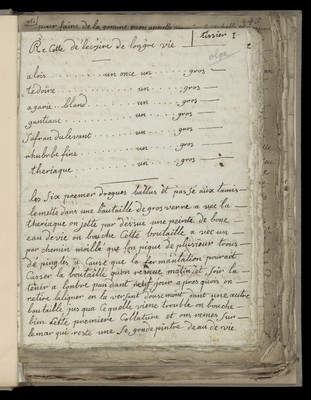 pour faire de la gomme
Re Cette de lecsire de longre vie
tessier I
alois ........ un once un ...... gros —
tedoire ............ un ..... gros —
agaric . bland ....... un ..... gros —
gantiane ............ un ..... gros —
Safran du levant ....... un ..... gros —
rhubrbe fine ......... un ..... gros —
theriaque ............ un ..... gros —
les Six premer drogues battus et passe aux tamis
lemelle dans une boutaille de gros verre a vec la
theriaque on jette par dessue une peinte de bone
eau de vie on bouche Cette boutaille a vec un
par chemin mollié que lon pique de plusieur trous
dé pingles a Cause que la fermantation pouroit
Casser la boutaille qui on remue matin et soir la
tenir a lombre pandant neuf jour apres quois on
retire la liquer en la versant dousement dant une autre
boutaille jus qua Ce quelle viene trouble on bouche
bien Cette premiere Collature et on remes sur
le mar qui reste une Segonde pintre deau de vie